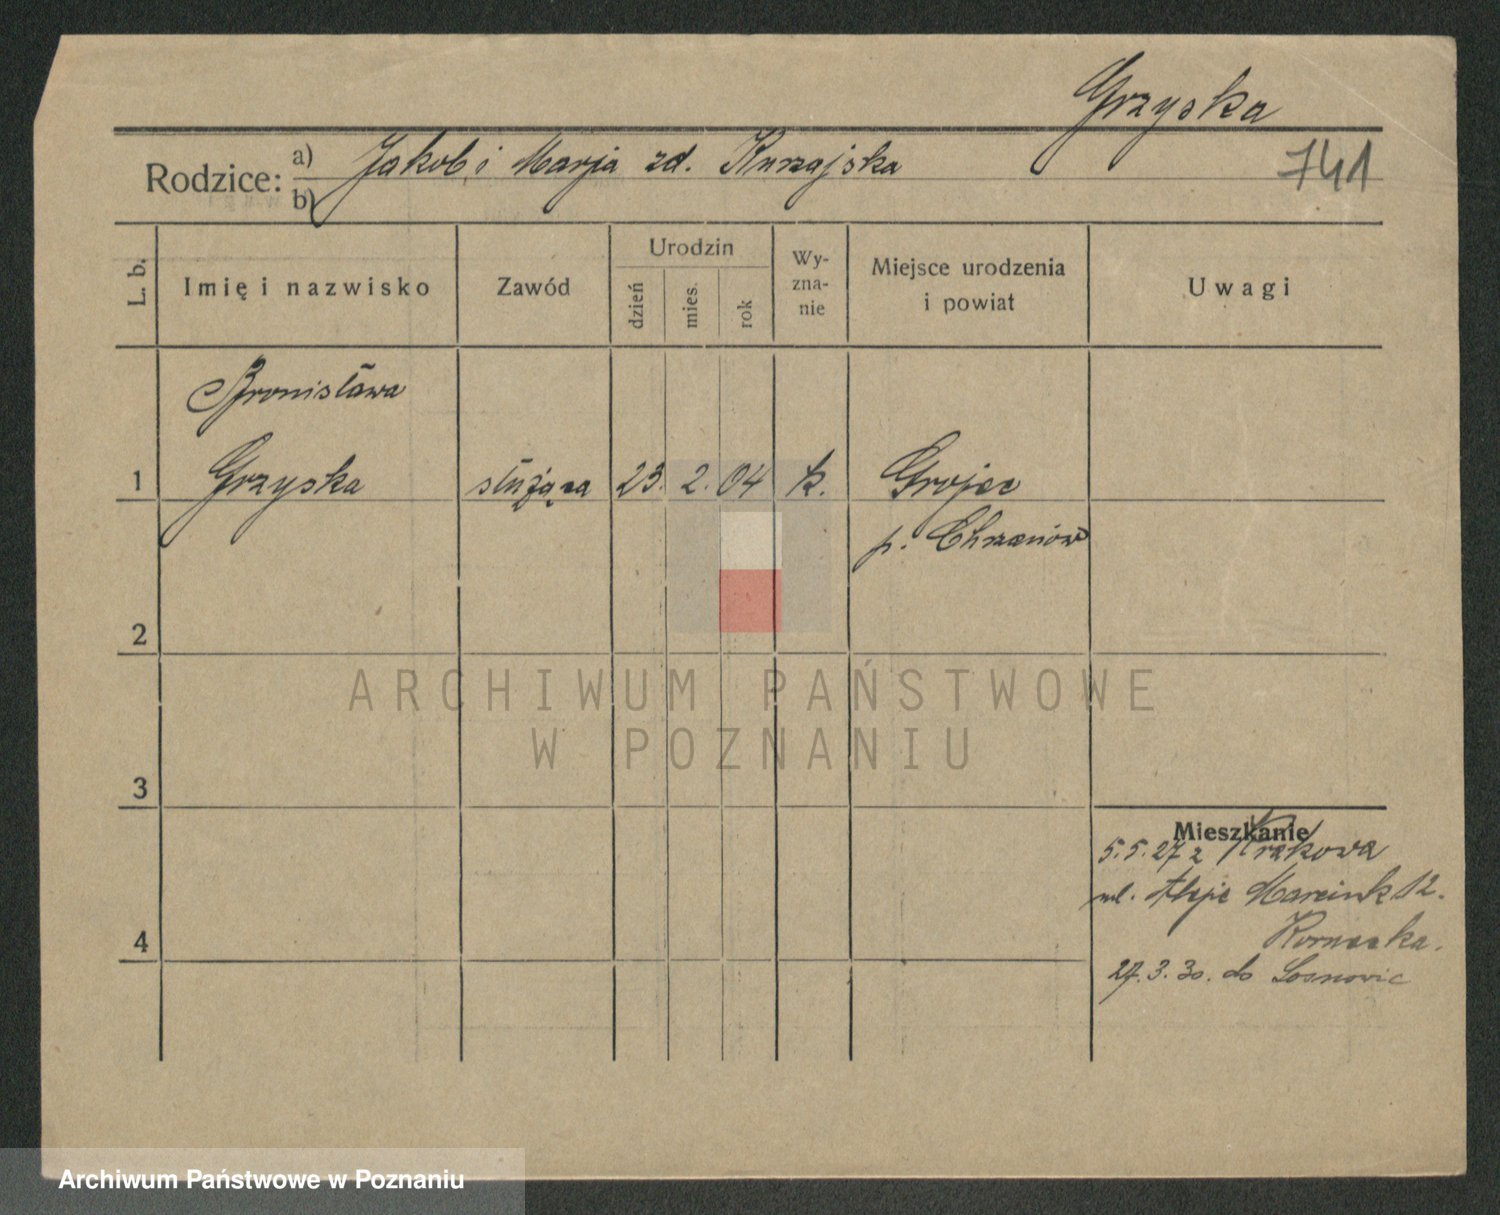 Grzyska
741
Rodzice: a) Jakob i Marja zd. Kurzajska
b)
L. b.
Imię i nazwisko
Zawód
Urodzin
dzień
mies.
rok
Wy-
zna-
nie
Miejsce urodzenia
i powiat
Uwagi
Bronisława
1 Grzyska służąca 23. 2. 04 k. Grojec
p. Chrzanów
2
3
4
Mieszkanie
5.5.27 z Krakowa
ul. Aleje Marcink 12.
27.3.30. do Sosnowic
ARCHIWUM PAŃSTWOWE
W POZNANIU
Archiwum Państwowe w Poznaniu